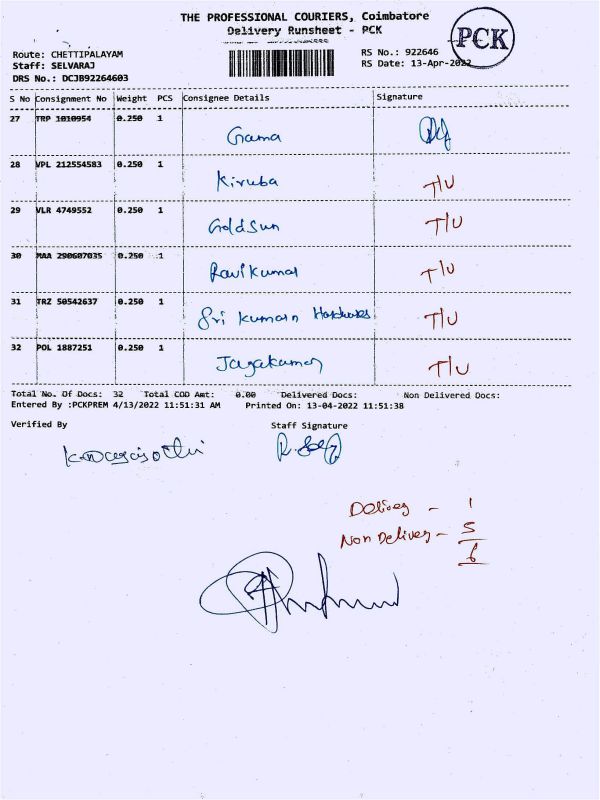 THE PROFESSIONAL COURIERS, Coimbatore
Delivery Runsheet - PCK
PCK
Route: CHETTIPALAYAM
Staff: SELVARAJ
DRS No.: DCJB92264603
RS No.: 922646
RS Date: 13-Apr-2022
S No Consignment No Weight PCS Consignee Details Signature
27 TRP 1010954 0.250 1 Grama
28 VPL 212554583 0.250 1 Kiruba T/U
29 VLR 4749552 0.250 1 Goldsun T/U
30 MAA 290607035 0.250 1 Ravikumar T/U
31 TRZ 50542637 0.250 1 Sri kumarn Hardwares T/U
32 POL 1887251 0.250 1 Jayakumar T/U
Total No. Of Docs: 32 Total COD Amt: 0.00 Delivered Docs: Non Delivered Docs:
Entered By :PCKPREM 4/13/2022 11:51:31 AM Printed On: 13-04-2022 11:51:38
Verified By Staff Signature
Delivey - 1
Non Delivey - 5
6